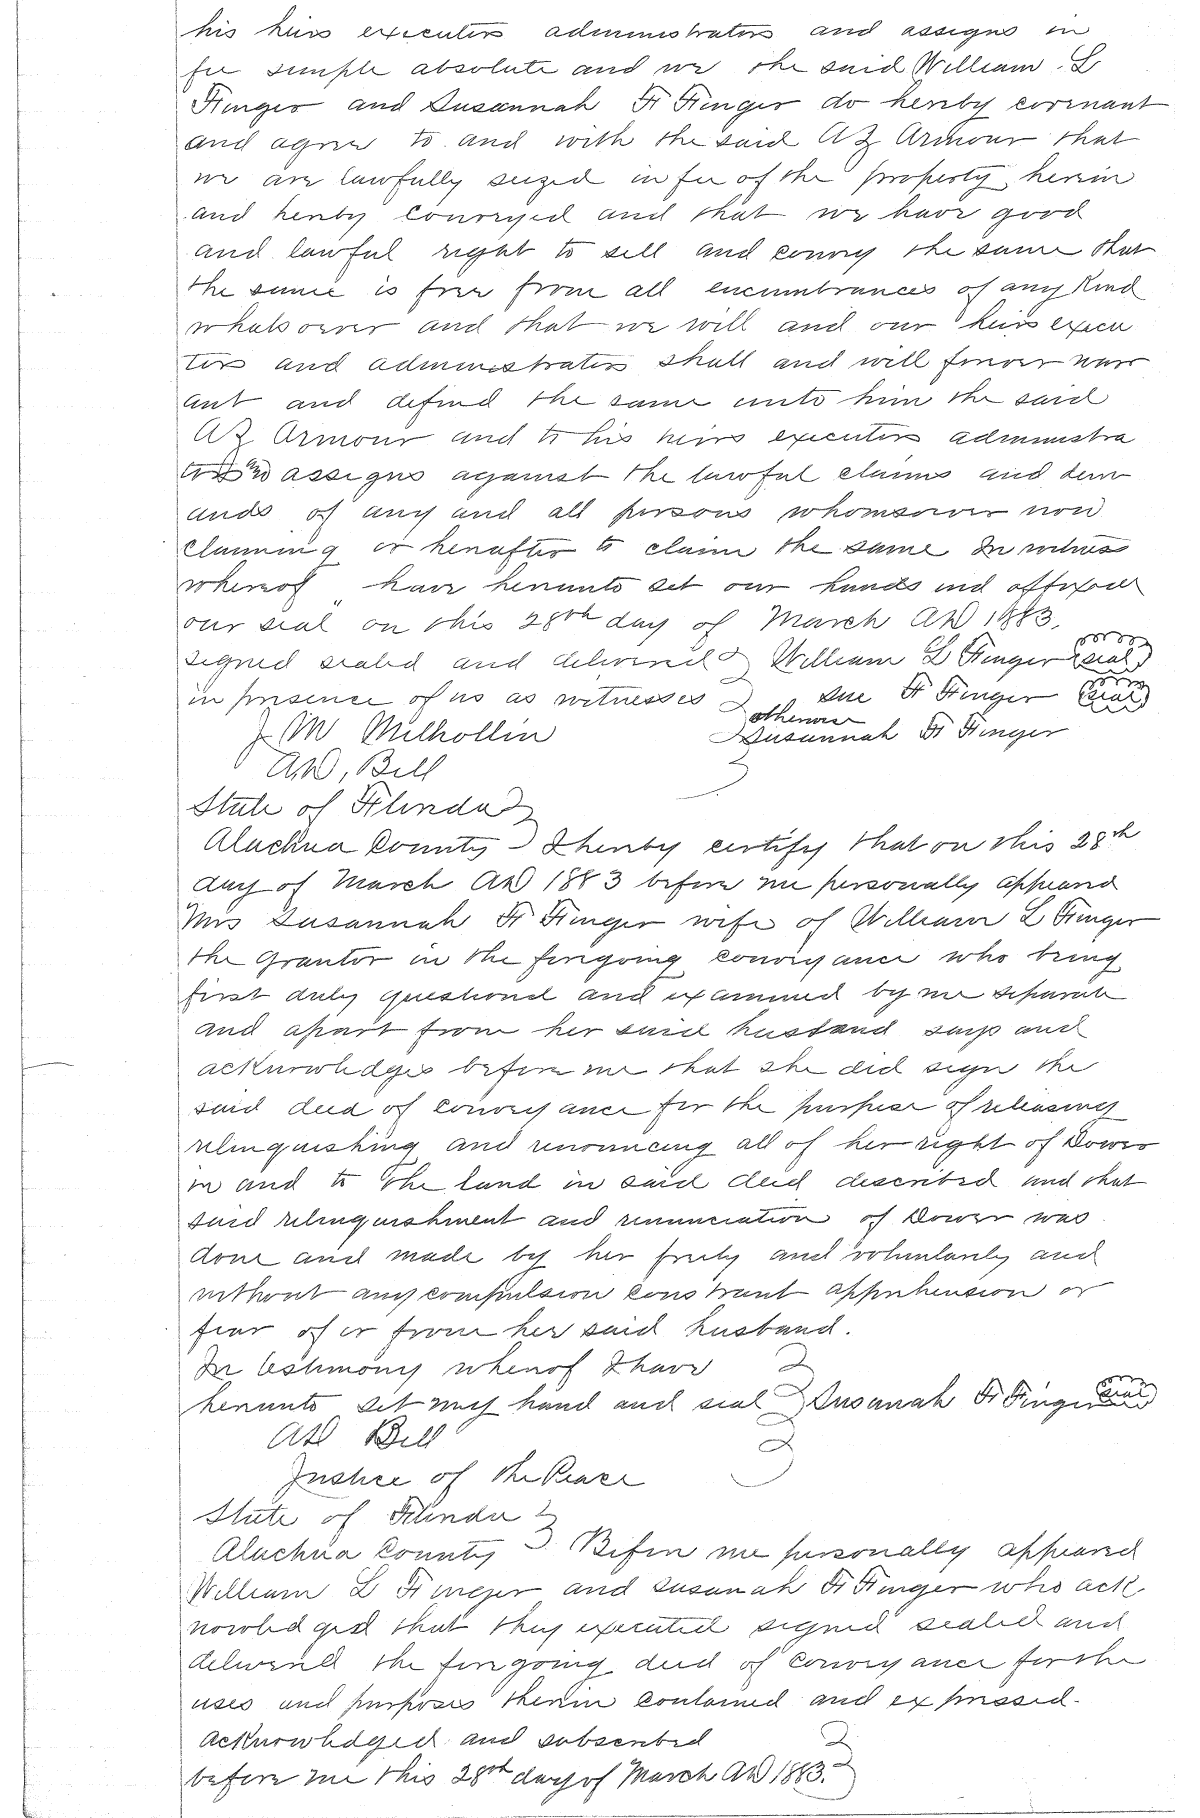 his heirs executors administrators and assigns in
fee simple absolute and we the said William L
Finger and Susannah F Finger do hereby covenant
and agree to and with the said A Z Armour that
we are lawfully seized in fee of the property herein
and hereby conveyed and that we have good
and lawful right to sell and convey the same that
the same is free from all encumbrances of any Kind
whatsoever and that we will and our heirs execu
tors and administrators shall and will forever warr
ant and defend the same unto him the said
A Z Armour and to his heirs executors administra
tors and assigns against the lawful claims and dem
ands of any and all persons whomsoever now
claiming or hereafter to claim the same In witness
whereof have hereunto set our hands and affixed
our seal on this 28th day of March AD 1883.
signed sealed and delivered William L Finger (seal)
in presence of us as witnesses Sue F Finger (seal)
otherwise
J M Milhollin Susannah F Finger
A.D. Bell
State of Florida
Alachua County I hereby certify that on this 28th
day of March AD 1883 before me personally appeared
Mrs Susannah F Finger wife of William L Finger
the Grantor in the foregoing conveyance who being
first duly questioned and examined by me separate
and apart from her said husband says and
acknowledges before me that she did sign the
said deed of conveyance for the purpose of releasing
relinquishing and renouncing all of her right of Dower
in and to the land in said deed described and that
said relinquishment and renunciation of Dower was
done and made by her freely and voluntarily and
without any compulsion constraint apprehension or
fear of or from her said husband.
In testimony whereof I have
hereunto set my hand and seal Susanah F Finger (seal)
AD Bell
Justice of the Peace
State of Florida
Alachua County Before me personally appeared
William L Finger and Susanah F Finger who ack
nowledged that they executed signed sealed and
delivered the foregoing deed of conveyance for the
uses and purposes therein contained and expressed.
Acknowledged and subscribed
before me this 28th day of March AD 1883.